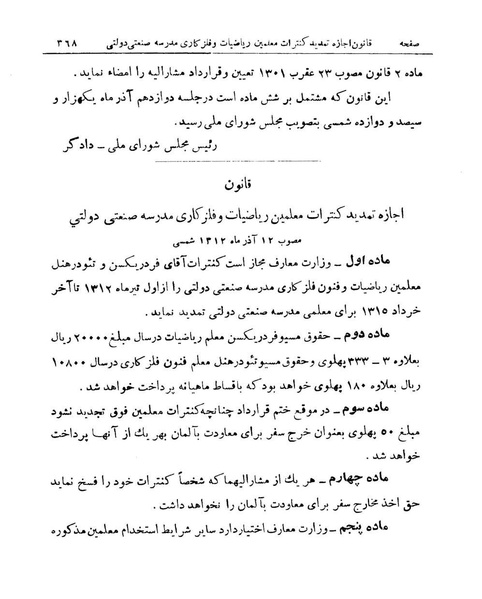 صفحه قانون اجازه تمدید کنترات معلمین ریاضیات و فلزکاری مدرسه صنعتی دولتی ۳۶۸
ماده ۲ قانون مصوب ۲۳ عقرب ۱۳۰۱ تعیین و قرارداد مشارالیه را امضاء نماید.
این قانون که مشتمل بر شش ماده است درجلسه دوازدهم آذر ماه یکهزار و
سیصد و دوازده شمسی بتصویب مجلس شورای ملی رسید.
رئیس مجلس شورای ملی ـ دادگر
قانون
اجازه تمدید کنترات معلمین ریاضیات و فلزکاری مدرسه صنعتی دولتی
مصوب ۱۲ آذر ماه ۱۳۱۲ شمسی
ماده اول ـ وزارت معارف مجاز است کنترات آقای فردریکسن و تئودرهنل
معلمین ریاضیات و فنون فلزکاری مدرسه صنعتی دولتی را از اول تیرماه ۱۳۱۲ تا آخر
خرداد ۱۳۱۵ برای معلمی مدرسه صنعتی دولتی تمدید نماید.
ماده دوم ـ حقوق مسیو فردریکسن معلم ریاضیات درسال مبلغ ۲۰۰۰۰ ریال
بعلاوه ۳ ـ ۳۳۳ پهلوی و حقوق مسیو تئودرهنل معلم فنون فلزکاری درسال ۱۰۸۰۰
ریال بعلاوه ۱۸۰ پهلوی خواهد بود که باقساط ماهیانه پرداخت خواهد شد.
ماده سوم ـ در موقع ختم قرارداد چنانچه کنترات معلمین فوق تجدید نشود
مبلغ ۵۰ پهلوی بعنوان خرج سفر برای معاودت بآلمان بهر یك از آنها پرداخت
خواهد شد.
ماده چهارم ـ هر یك از مشارالیهما که شخصاً کنترات خود را فسخ نماید
حق اخذ مخارج سفر برای معاودت بآلمان را نخواهد داشت.
ماده پنجم ـ وزارت معارف اختیار دارد سایر شرایط استخدام معلمین مذکوره